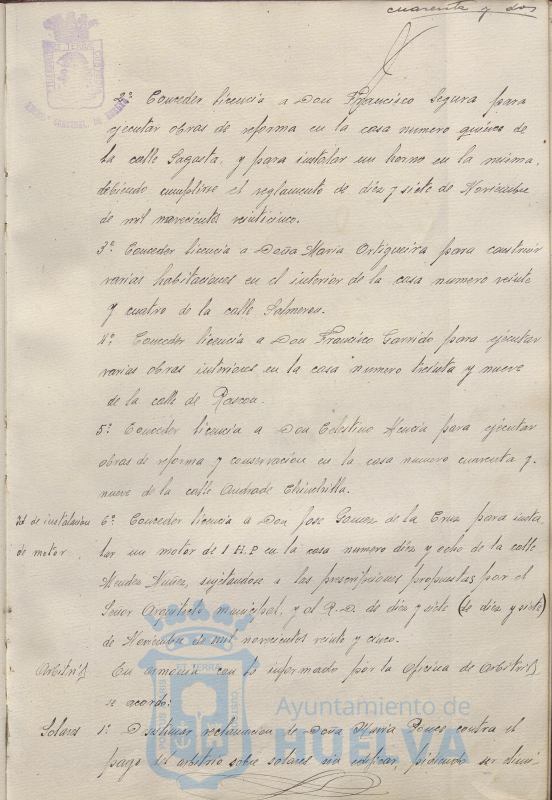 cuarenta y dos
2º Conceder licencia a Don Francisco Segura para
ejecutar obras de reforma en la casa numero quince de
la calle Sagasta, y para instalar un horno en la misma,
debiendo cumplirse el reglamento de diez y siete de Noviembre
de mil novecientos veinticinco.
3º Conceder licencia a Doña Maria Ortigueira para construir
varias habitaciones en el interior de la casa numero veinte
y cuatro de la calle Salmeron.
4º Conceder licencia a Don Francisco Garrido para ejecutar
varias obras interiores en la casa numero treinta y nueve
de la calle de Rascon.
5º Conceder licencia a Don Celestino para ejecutar
obras de reforma y conservacion en la casa numero cuarenta y
nueve de la calle Andrade Chinchilla.
Id de instalacion
de motor
6º Conceder licencia a Don Jose Gomez de la Cruz para insta-
lar un motor de 1 H.P en la casa numero diez y ocho de la calle
Mendez Nuñez, sujetandose a las prescripciones propuestas por el
Señor Arquitecto municipal, y al R.D. de diez y siete (de diez y siete)
de Noviembre de mil novecientos veinte y cinco.
Arbitrios
En armonia con lo informado por la Oficina de Arbitrios
se acordo:
Solares
1º Desestimar reclamacion de Doña Maria Ponce contra el
pago del arbitrio sobre solares sin edificar, pidiendo ser elimi-
Ayuntamiento de
HUELVA